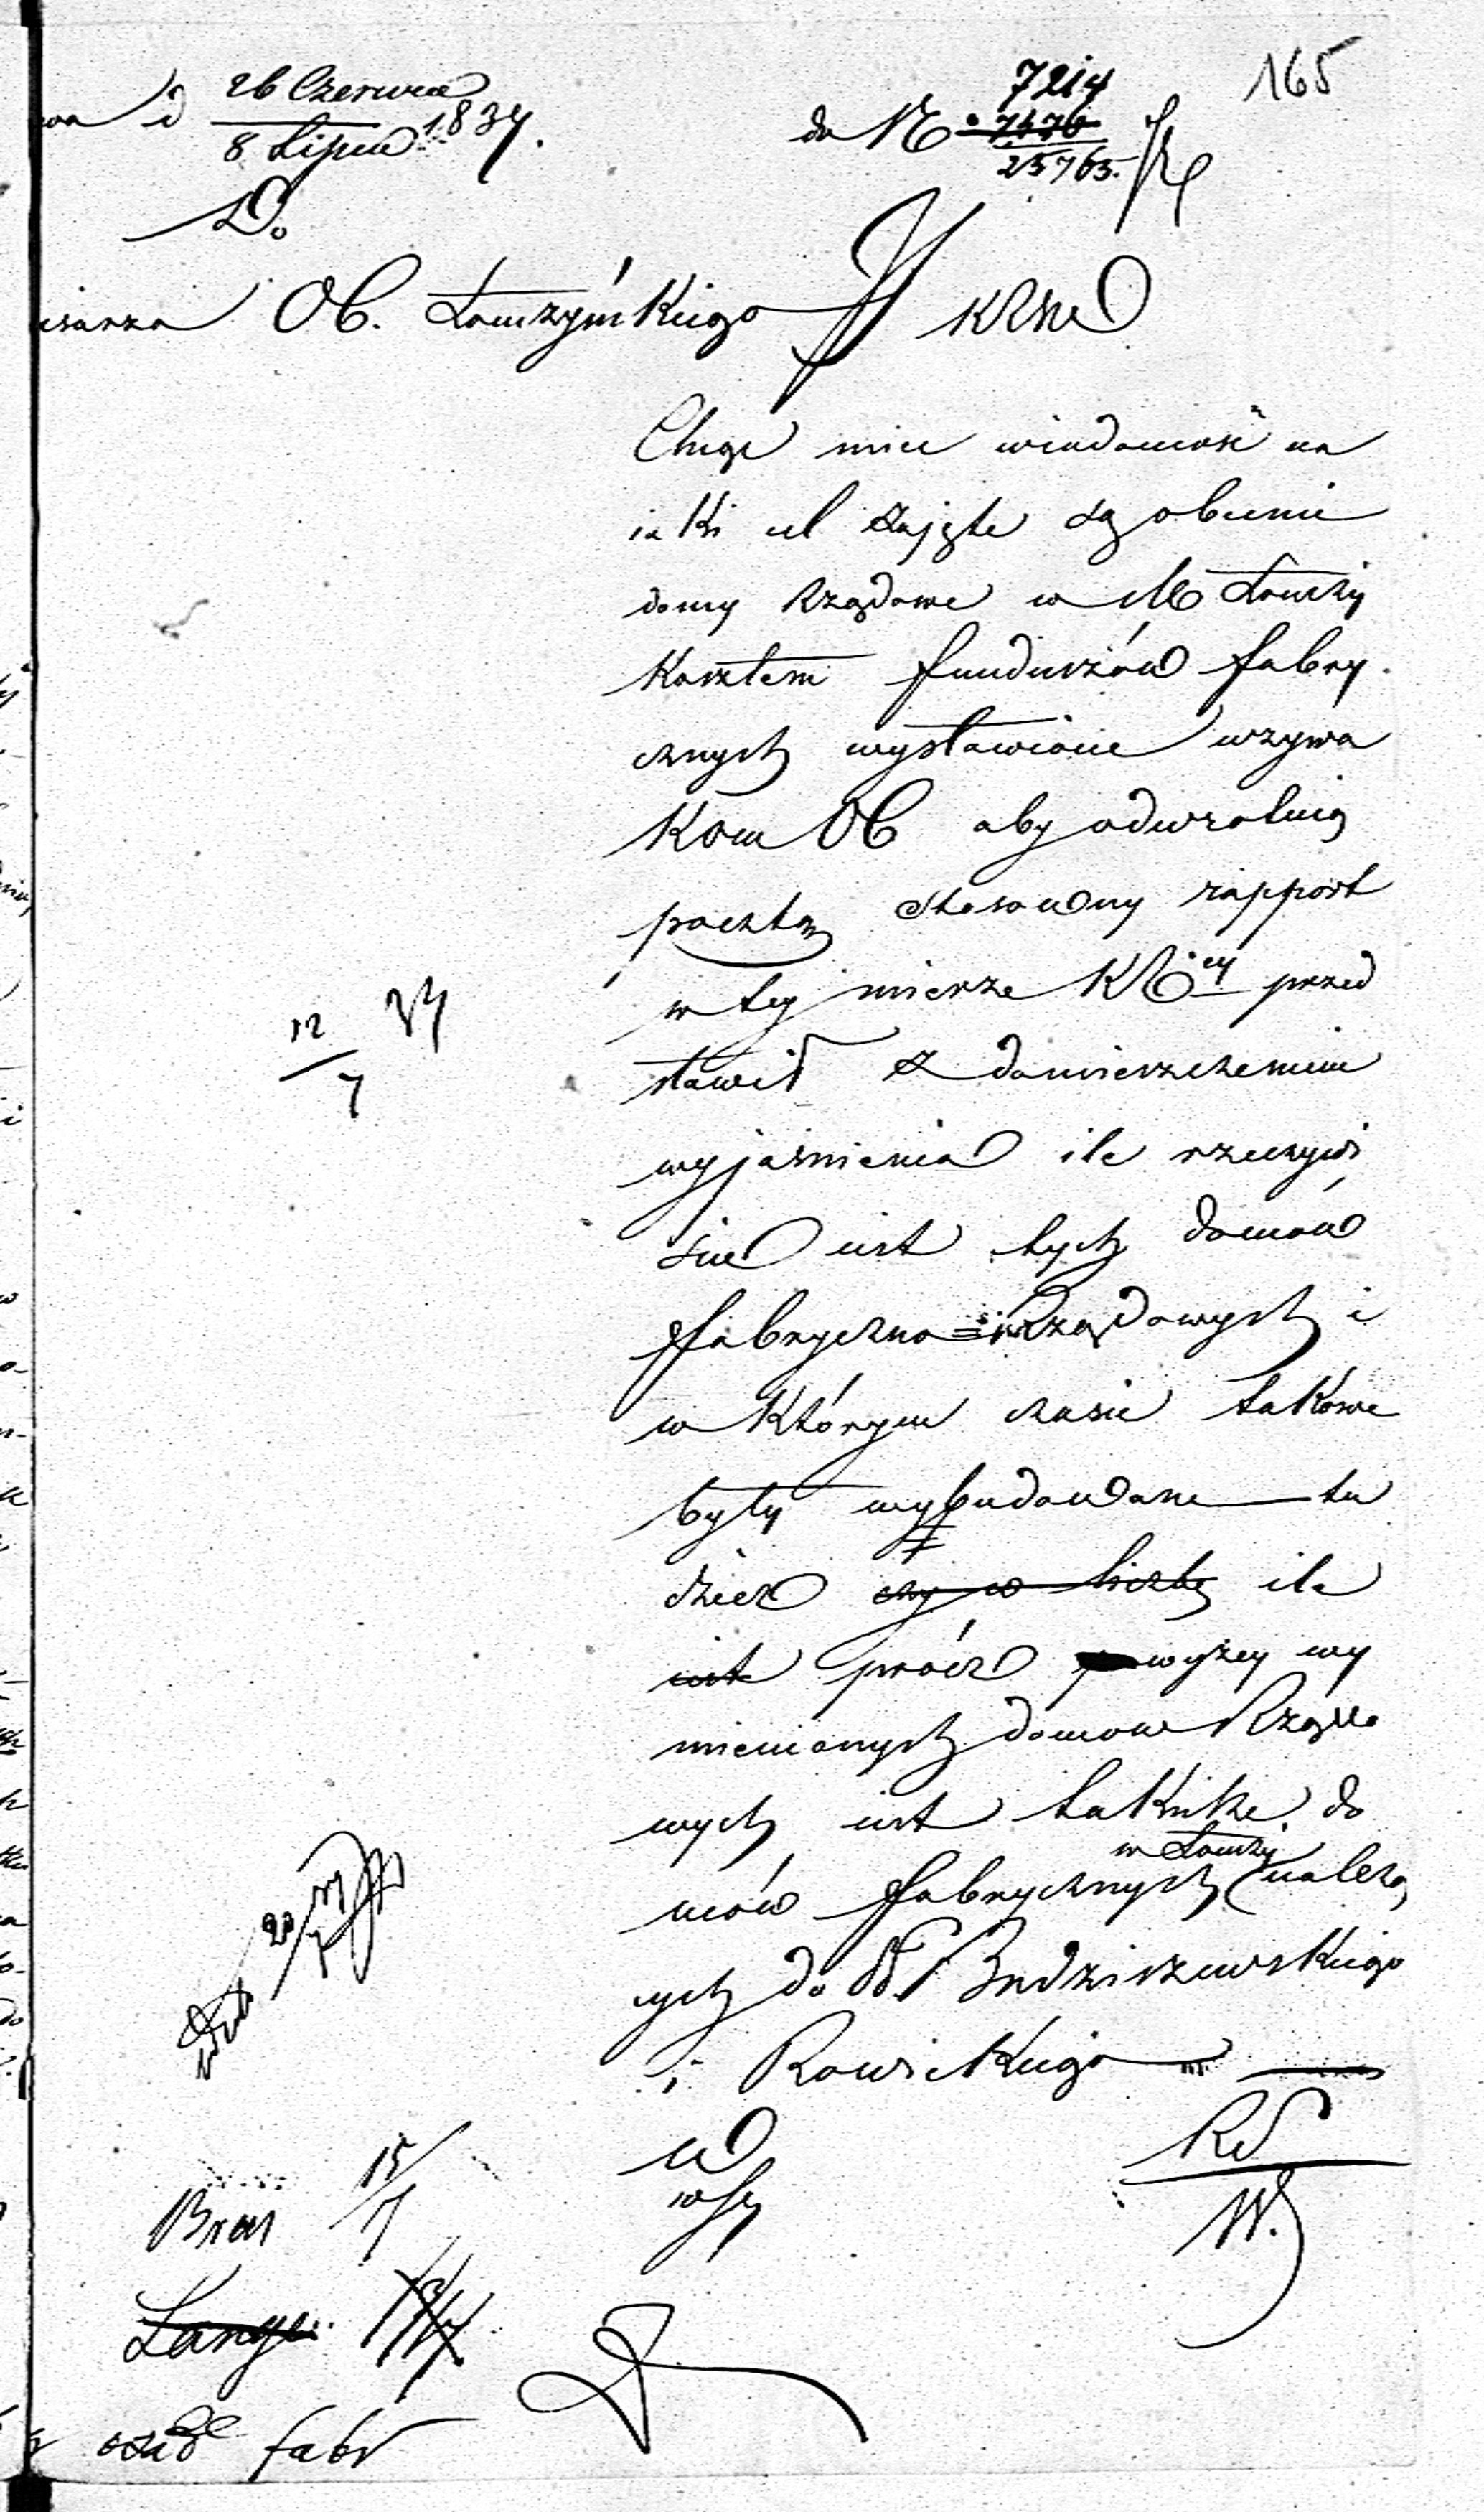 d 26 Czerwca
8 Lipca 1837.
do N 7214
7476
25765.
165
Do
Ob. Łomżyńskiego
Chcąc mieć wiadomość na
iaki cel zajęte są obecnie
domy Rządowe w M Łomży
Kosztem funduszów fabry
cznych wystawione wzywa
Kom Ob aby odwrotną
pocztą stosowny rapport
w tej mierze KR przed
stawił z domieszczeniem
wyjaśnienia ile rzeczywi
ście iest tych domów
fabryczno = Rządowych i
w którym czasie takowe
były wybudowane tu
dzież czy w liczbę ile
iest prócz powyżey wy
mienionych domow Rządo
wych iest także do
w Łomży
mów fabrycznych należą
cych do Budziszewskiego
i Rowickiego
12/7 37
20/7
15/7
Lange
osad fabr